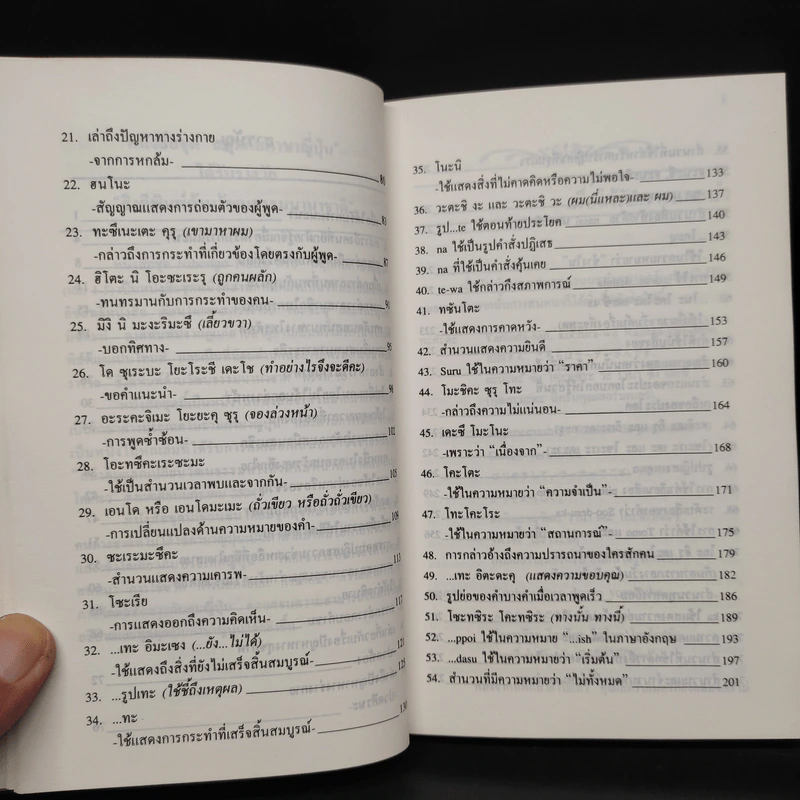 21. เล่าถึงปัญหาทางร่างกาย
-จากการหกล้ม- 80
22. ฮนโนะ
-สัญญาณแสดงการถ่อมตัวของผู้พูด- 83
23. ทะซึเนะเตะ คุรุ (เขามาหาผม)
-กล่าวถึงการกระทำที่เกี่ยวข้องโดยตรงกับผู้พูด- 87
24. ฮิโตะ นิ โอะซะเระรุ (ถูกคนผลัก)
-ทนทรมานกับการกระทำของคน-
25. มิงิ นิ มะงะริมะซึ (เลี้ยวขวา)
-บอกทิศทาง-
26. โด ซุเระบะ โยะโระชี เดะโช (ทำอย่างไรจึงจะดีคะ)
-ขอคำแนะนำ- 98
27. อะระคะจิเมะ โยะยะคุ ซุรุ (จองล่วงหน้า)
-การพูดซ้ำซ้อน- 102
28. โอะทซึคะเระซะมะ
-ใช้เป็นสำนวนเวลาพบและจากกัน- 105
29. เอนโด หรือ เอนโดมะเมะ (ถั่วเขียว หรือถั่วถั่วเขียว)
-การเปลี่ยนแปลงด้านความหมายของคำ- 109
30. ซะเระมะซึคะ
-สำนวนแสดงความเคารพ- 113
31. โซะเรีย
-การแสดงออกถึงความคิดเห็น- 117
32. ...เทะ อิมะเซง (...ยัง...ไม่ได้)
-ใช้แสดงถึงสิ่งที่ยังไม่เสร็จสิ้นสมบูรณ์- 121
33. ...รูปเทะ (ใช้ชี้ถึงเหตุผล) 125
34. ...ทะ
-ใช้แสดงการกระทำที่เสร็จสิ้นสมบูรณ์- 130
35. โนะนิ
-ใช้แสดงสิ่งที่ไม่คาดคิดหรือความไม่พอใจ- 133
36. วะตะชิ งะ และ วะตะชิ วะ (ผม(นี่แหละ)และ ผม) 137
37. รูป...te ใช้ตอนท้ายประโยค 140
38. na ใช้เป็นรูปคำสั่งปฏิเสธ 143
39. na ที่ใช้เป็นคำสั่งคุ้นเคย 146
40. te-wa ใช้กล่าวถึงสภาพการณ์ 149
41. ทซึนโตะ
-ใช้แสดงการคาดหวัง- 153
42. สำนวนแสดงความยินดี 157
43. Suru ใช้ในความหมายว่า “ราคา” 160
44. โมะชิคะ ซุรุ โทะ
-กล่าวถึงความไม่แน่นอน- 164
45. เดะซึ โมะโนะ
-เพราะว่า “เนื่องจาก” 168
46. โคะโตะ
-ใช้ในความหมายว่า “ความจำเป็น” 171
47. โทะโคะโระ
-ใช้ในความหมายว่า “สถานการณ์” 175
48. การกล่าวอ้างถึงความปรารถนาของใครสักคน 179
49. ...เทะ อิตะดะคุ (แสดงความขอบคุณ) 182
50. รูปย่อของคำบางคำเมื่อเวลาพูดเร็ว 186
51. โซะทซิระ โคะทซิระ (ทางนั้น ทางนี้) 189
52. ...ppoi ใช้ในความหมาย “...ish” ในภาษาอังกฤษ 193
53. ...dasu ใช้ในความหมายว่า “เริ่มต้น” 197
54. สำนวนที่มีความหมายว่า “ไม่ทั้งหมด” 201